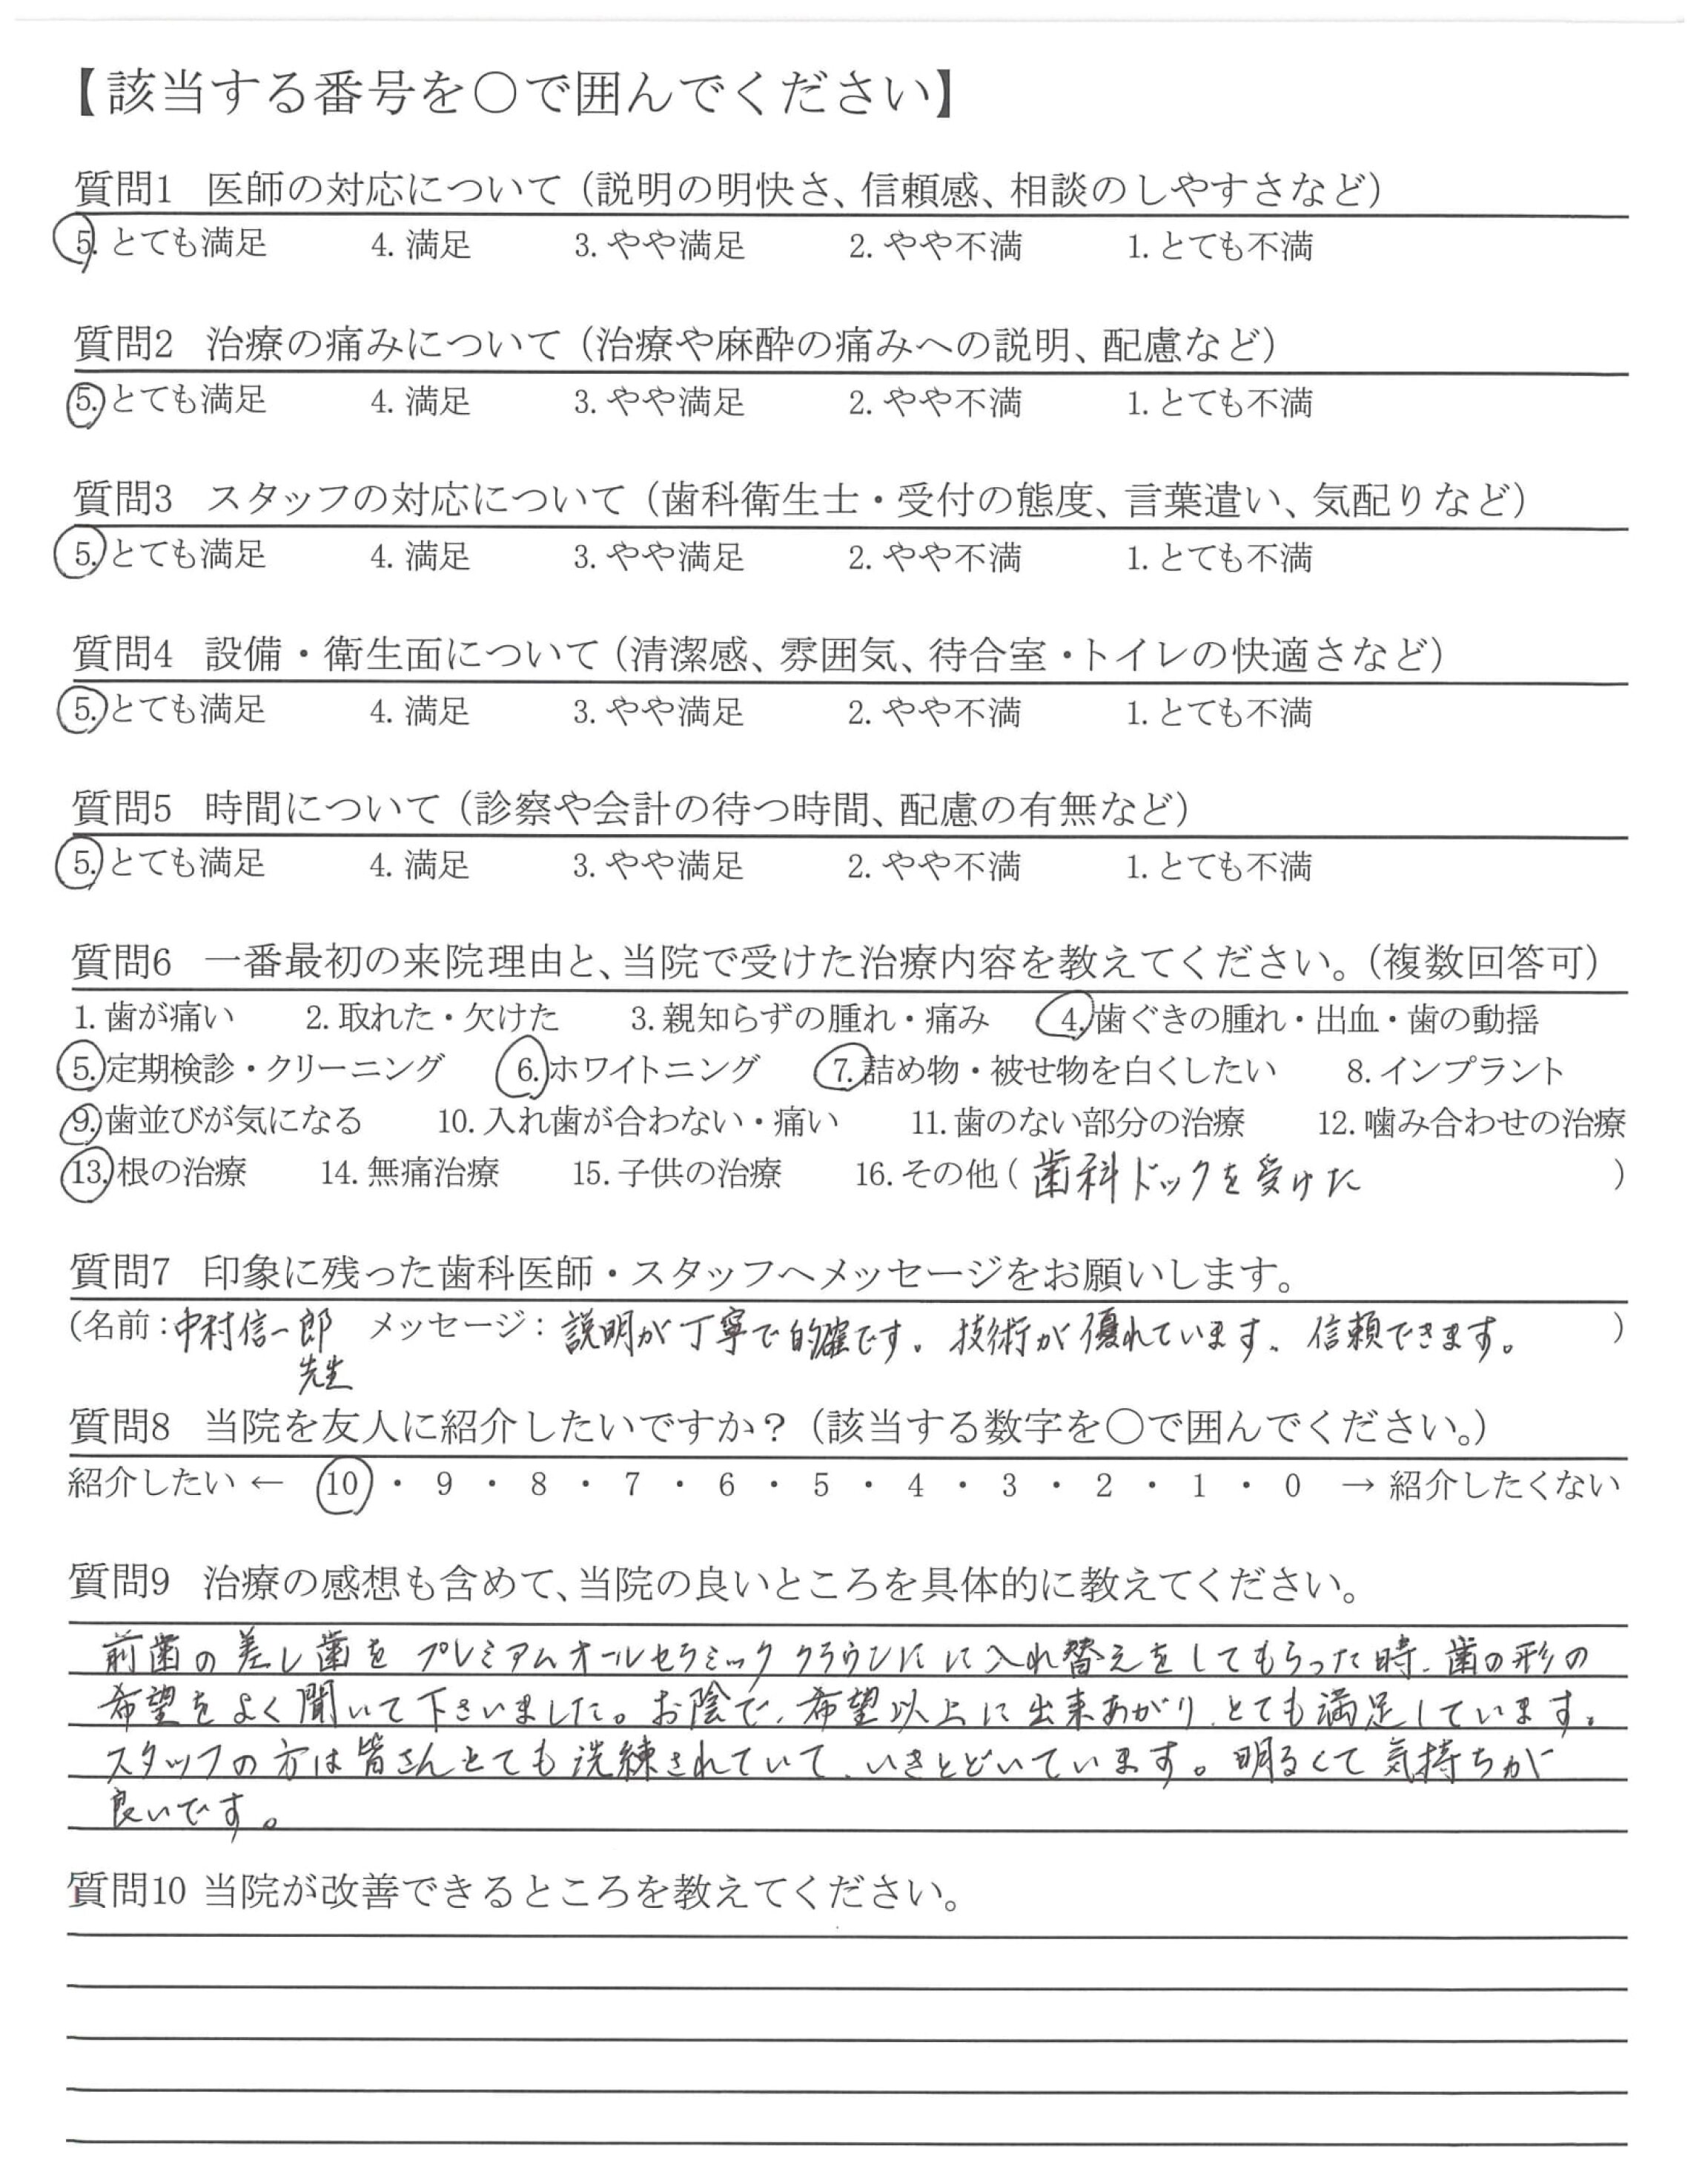 【該当する番号を○で囲んでください】
質問1 医師の対応について（説明の明快さ、信頼感、相談のしやすさなど）
5. とても満足 4. 満足 3. やや満足 2. やや不満 1. とても不満
質問2 治療の痛みについて（治療や麻酔の痛みへの説明、配慮など）
5. とても満足 4. 満足 3. やや満足 2. やや不満 1. とても不満
質問3 スタッフの対応について（歯科衛生士・受付の態度、言葉遣い、気配りなど）
5. とても満足 4. 満足 3. やや満足 2. やや不満 1. とても不満
質問4 設備・衛生面について（清潔感、雰囲気、待合室・トイレの快適さなど）
5. とても満足 4. 満足 3. やや満足 2. やや不満 1. とても不満
質問5 時間について（診察や会計の待つ時間、配慮の有無など）
5. とても満足 4. 満足 3. やや満足 2. やや不満 1. とても不満
質問6 一番最初の来院理由と、当院で受けた治療内容を教えてください。（複数回答可）
1. 歯が痛い 2. 取れた・欠けた 3. 親知らずの腫れ・痛み 4. 歯ぐきの腫れ・出血・歯の動揺
5. 定期検診・クリーニング 6. ホワイトニング 7. 詰め物・被せ物を白くしたい 8. インプラント
9. 歯並びが気になる 10. 入れ歯が合わない・痛い 11. 歯のない部分の治療 12. 噛み合わせの治療
13. 根の治療 14. 無痛治療 15. 子供の治療 16. その他（歯科ドックを受けた ）
質問7 印象に残った歯科医師・スタッフへメッセージをお願いします。
（名前：中村信一郎 メッセージ：説明が丁寧で的確です。技術が優れています。信頼できます。 ）
先生
質問8 当院を友人に紹介したいですか？（該当する数字を○で囲んでください。）
紹介したい ← 10 ・ 9 ・ 8 ・ 7 ・ 6 ・ 5 ・ 4 ・ 3 ・ 2 ・ 1 ・ 0 → 紹介したくない
質問9 治療の感想も含めて、当院の良いところを具体的に教えてください。
前歯の差し歯を プレミアムオールセラミッククラウンにに入れ替えをしてもらった時、歯の形の
希望をよく聞いて下さいました。お陰で、希望以上に出来あがり、とても満足しています。
スタッフの方は皆さんとても洗練されていて、いきとどいています。明るくて気持ちが
良いです。
質問10 当院が改善できるところを教えてください。